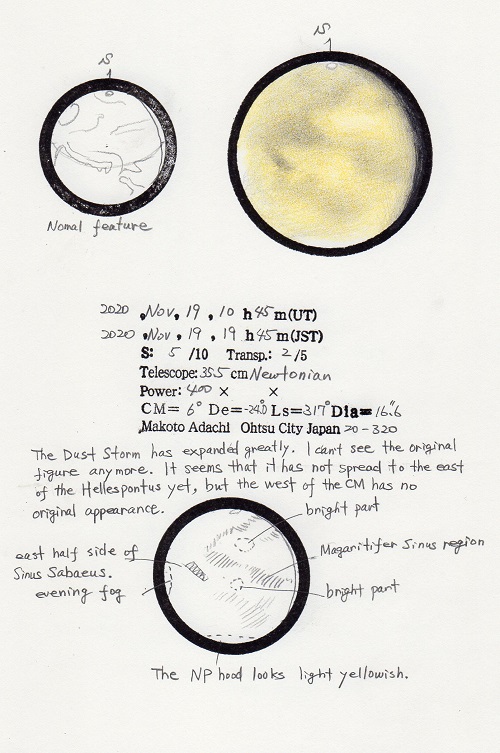 S
S
Nomal feature
2020 Nov, 19, 10 h 45 m (UT)
2020 Nov, 19, 19 h 45 m (JST)
S: 5 /10 Transp.: 2 /5
Telescope: 355 cm Newtonian
Power: 400 × ×
CM= 6° De=-24.0 Ls=317° Dia=16."6
Makoto Adachi Ohtsu City Japan 20-320
The Dust Storm has expanded greatly. I can't see the original
figure anymore. It seems that it has not spread to the east
of the Hellespontus yet, but the west of the CM has no
original appearance.
bright part
east half side of
Sinus Sabaeus.
Magaritifer Sinus region
evening fog
bright part
The NP hood looks light yellowish.